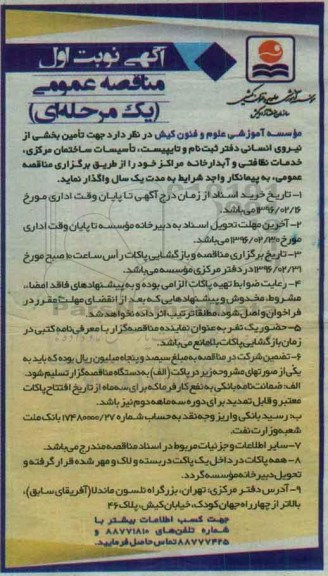 آگهی نوبت اول
مناقصه عمومی
(یک مرحله‌ای)
مؤسسه آموزشی علوم و فنون کیش در نظر دارد جهت تأمین بخشی از
نیروی انسانی دفتر ثبت‌نام و تایپیست، تأسیسات ساختمان مرکزی،
خدمات نظافتی و آبدارخانه مراکز خود را از طریق برگزاری مناقصه
عمومی، به پیمانکار واجد شرایط به مدت یک سال واگذار نماید.
۱- تاریخ خرید اسناد از زمان درج آگهی تا پایان وقت اداری مورخ
۱۳۹۶/۰۲/۱۶ می‌باشد.
۲- آخرین مهلت تحویل اسناد به دبیرخانه مؤسسه تا پایان وقت اداری
مورخ ۱۳۹۶/۰۲/۳۰ می‌باشد.
۳- تاریخ برگزاری مناقصه و بازگشایی پاکات رأس ساعت ۱۰ صبح مورخ
۱۳۹۶/۰۲/۳۱ در دفتر مرکزی مؤسسه می‌باشد.
۴- رعایت ضوابط تهیه پاکات الزامی بوده و به پیشنهادهای فاقد امضاء،
مشروط، مخدوش و پیشنهادهایی که بعد از انقضای مهلت مقرر در
فراخوان واصل شود، مطلقاً ترتیب اثر داده نخواهد شد.
۵- حضور یک نفر به عنوان نماینده مناقصه‌گزار با معرفی‌نامه کتبی در
زمان بازگشایی پاکات بلامانع می‌باشد.
۶- تضمین شرکت در مناقصه به مبلغ سیصد و پنجاه میلیون ریال بوده که باید به
یکی از صورتهای مشروحه زیر در پاکت (الف) به دستگاه مناقصه‌گزار تسلیم شود.
الف: ضمانت‌نامه بانکی به نفع کارفرما که برای سه ماه از تاریخ افتتاح پاکات
معتبر و قابل تمدید برای دوره سه ماهه دوم نیز باشد.
ب: رسید بانکی واریز وجه نقد به حساب شماره ۱۷۴۸۰۰۰۰/۲۷ بانک ملت
شعبه وزارت نفت.
۷- سایر اطلاعات و جزئیات مربوط در اسناد مناقصه مندرج می‌باشد.
۸- همه پاکات در داخل یک پاکت دربسته و لاک و مهر شده قرار گرفته و
تحویل دبیرخانه مؤسسه گردد.
۹- آدرس دفتر مرکزی: تهران، بزرگراه نلسون ماندلا (آفریقای سابق)،
بالاتر از چهارراه جهان کودک، خیابان کیش، پلاک ۴۶
جهت کسب اطلاعات بیشتر با
شماره تلفن‌های ۸۸۷۷۱۸۱۰ و
۸۸۷۷۷۴۲۵ تماس حاصل فرمایید.